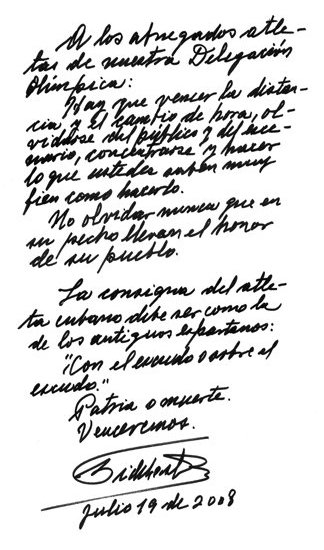 A los abnegados atle-
tas de nuestra Delegación
Olímpica:
Hay que vencer la distan-
cia y el cambio de hora, ol-
vidarse del público y del esce-
nario, concentrarse y hacer
lo que ustedes saben muy
bien como hacerlo.
No olvidar nunca que en
su pecho llevan el honor
de su pueblo.
La consigna del atle-
ta cubano debe ser como la
de los antiguos espartanos:
"Con el escudo o sobre el
escudo."
Patria o muerte.
Venceremos.
Julio 19 de 2008